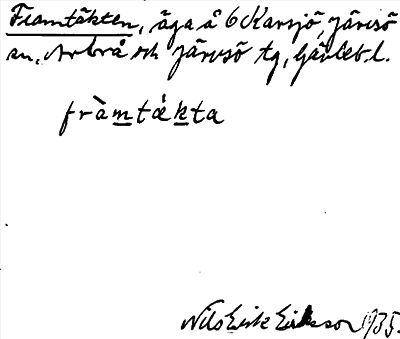 Framtäkten, äga å 6 Karsjö, Järvsö
sn, Arbrå och Järvsö tg, Gävleb. l.
fràmtǽkta
Nils Erik Eriksson 1935.